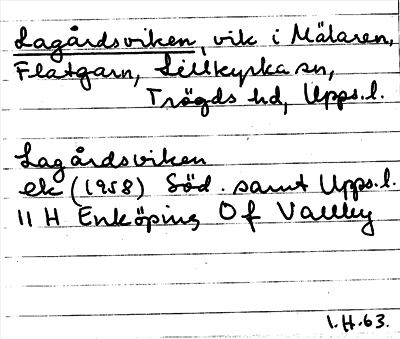 Lagårdsviken, vik i Mälaren,
Flatgarn, Lillkyrka sn,
Trögds hd, Upps.l.
Lagårdsviken
ek (1958) Söd. samt Upps.l.
11 H Enköping Of Vallby
I.H.63.